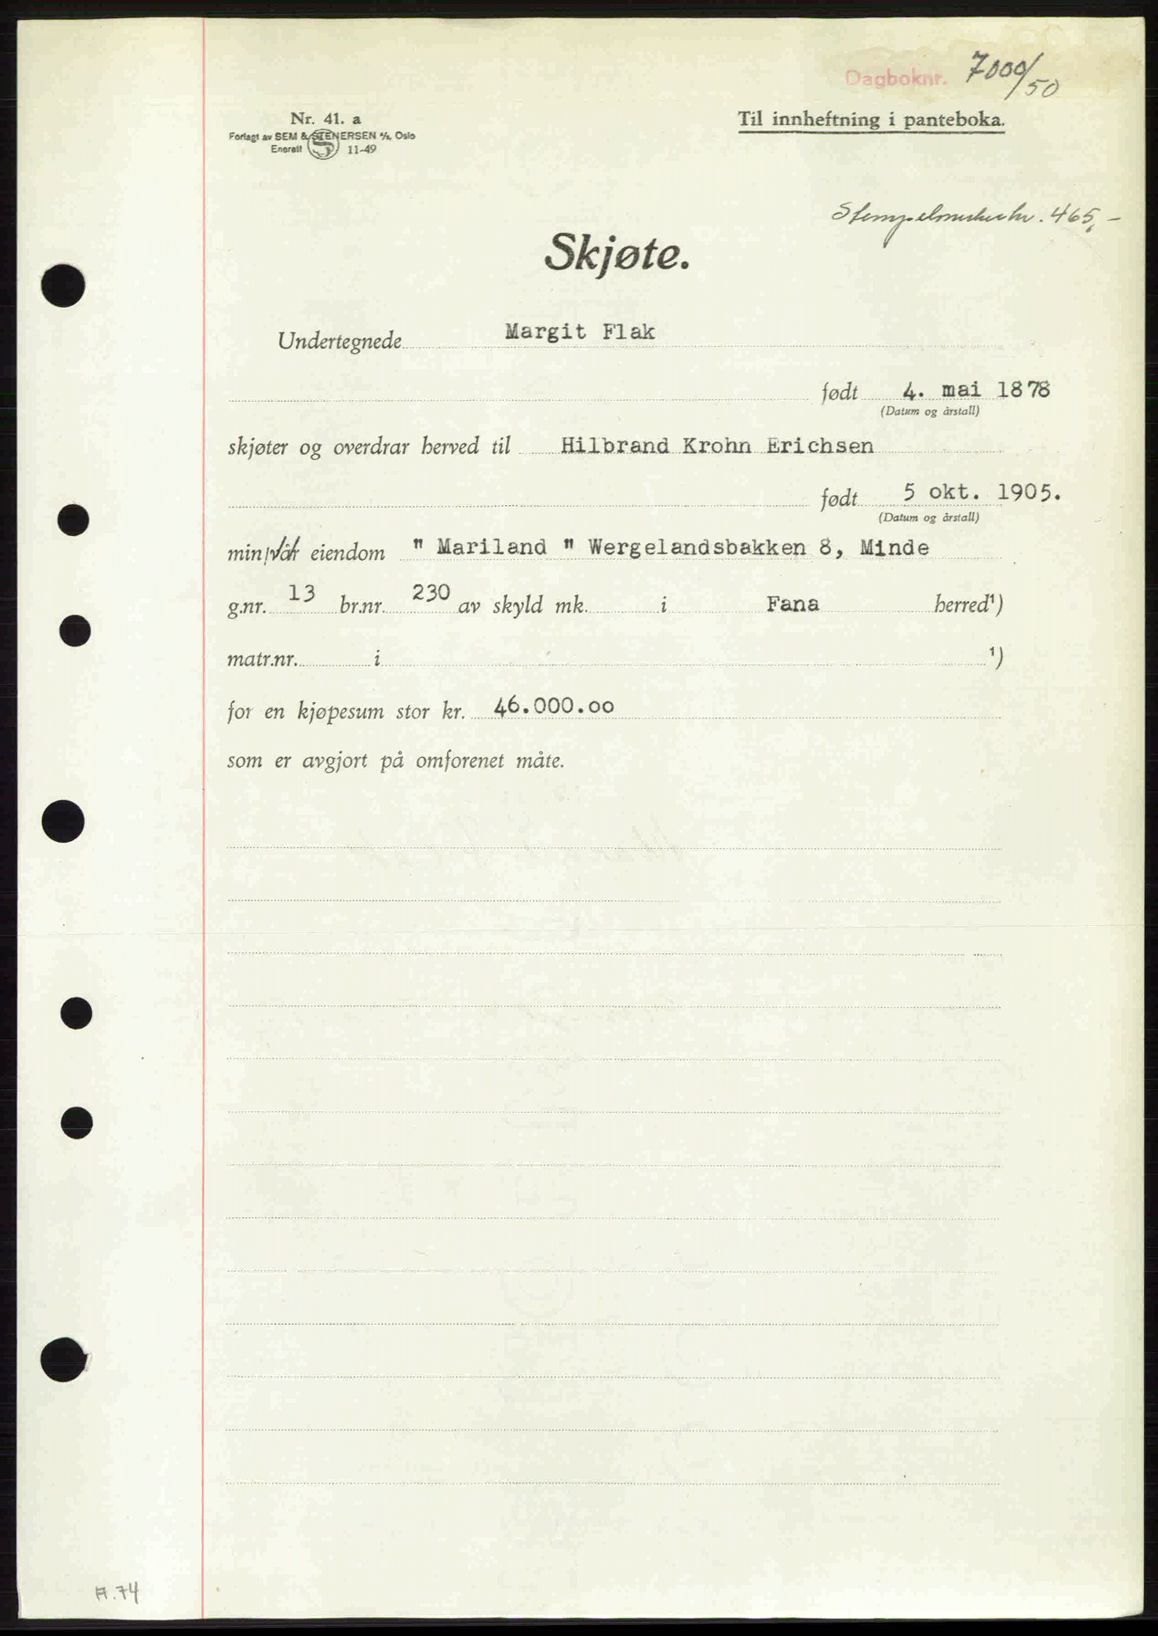 Dagboknr. 7000/50
Nr. 41. a
Til innheftning i panteboka.
Forlagt av SEM & STENERSEN A/S, Oslo
Enerett S 11-49
Stempelmerker kr. 465,-
Skjøte.
Undertegnede Margit Flak
født 4. mai 1878
(Datum og årstall)
skjøter og overdrar herved til Hilbrand Krohn Erichsen
født 5 okt. 1905.
(Datum og årstall)
min/vår eiendom " Mariland " Wergelandsbakken 8, Minde
g.nr. 13 br.nr. 230 av skyld mk. i Fana herred¹)
matr.nr. i ¹)
for en kjøpesum stor kr. 46.000.oo
som er avgjort på omforenet måte.
A.74